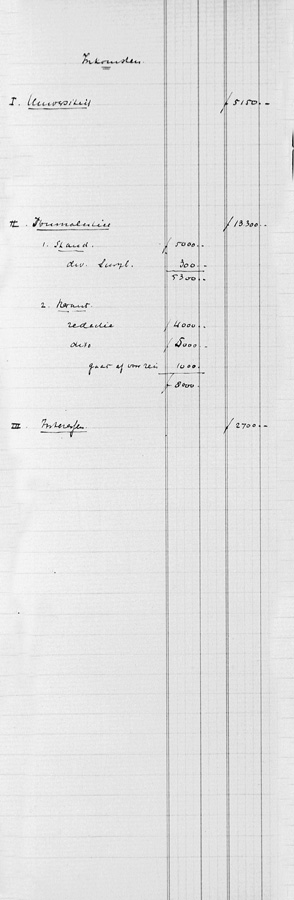 Inkomsten.
I. Universiteit ƒ 5150.--
II. Journalistiek ƒ 13300.--
1. Stand. ƒ 5000.--
div. 300.--
5300.--
2. Krant.
redactie ƒ 4000.--
dito ƒ 5000.--
gaat af voor 1000.
ƒ 8000.--
III. Interesten ƒ 2700.--